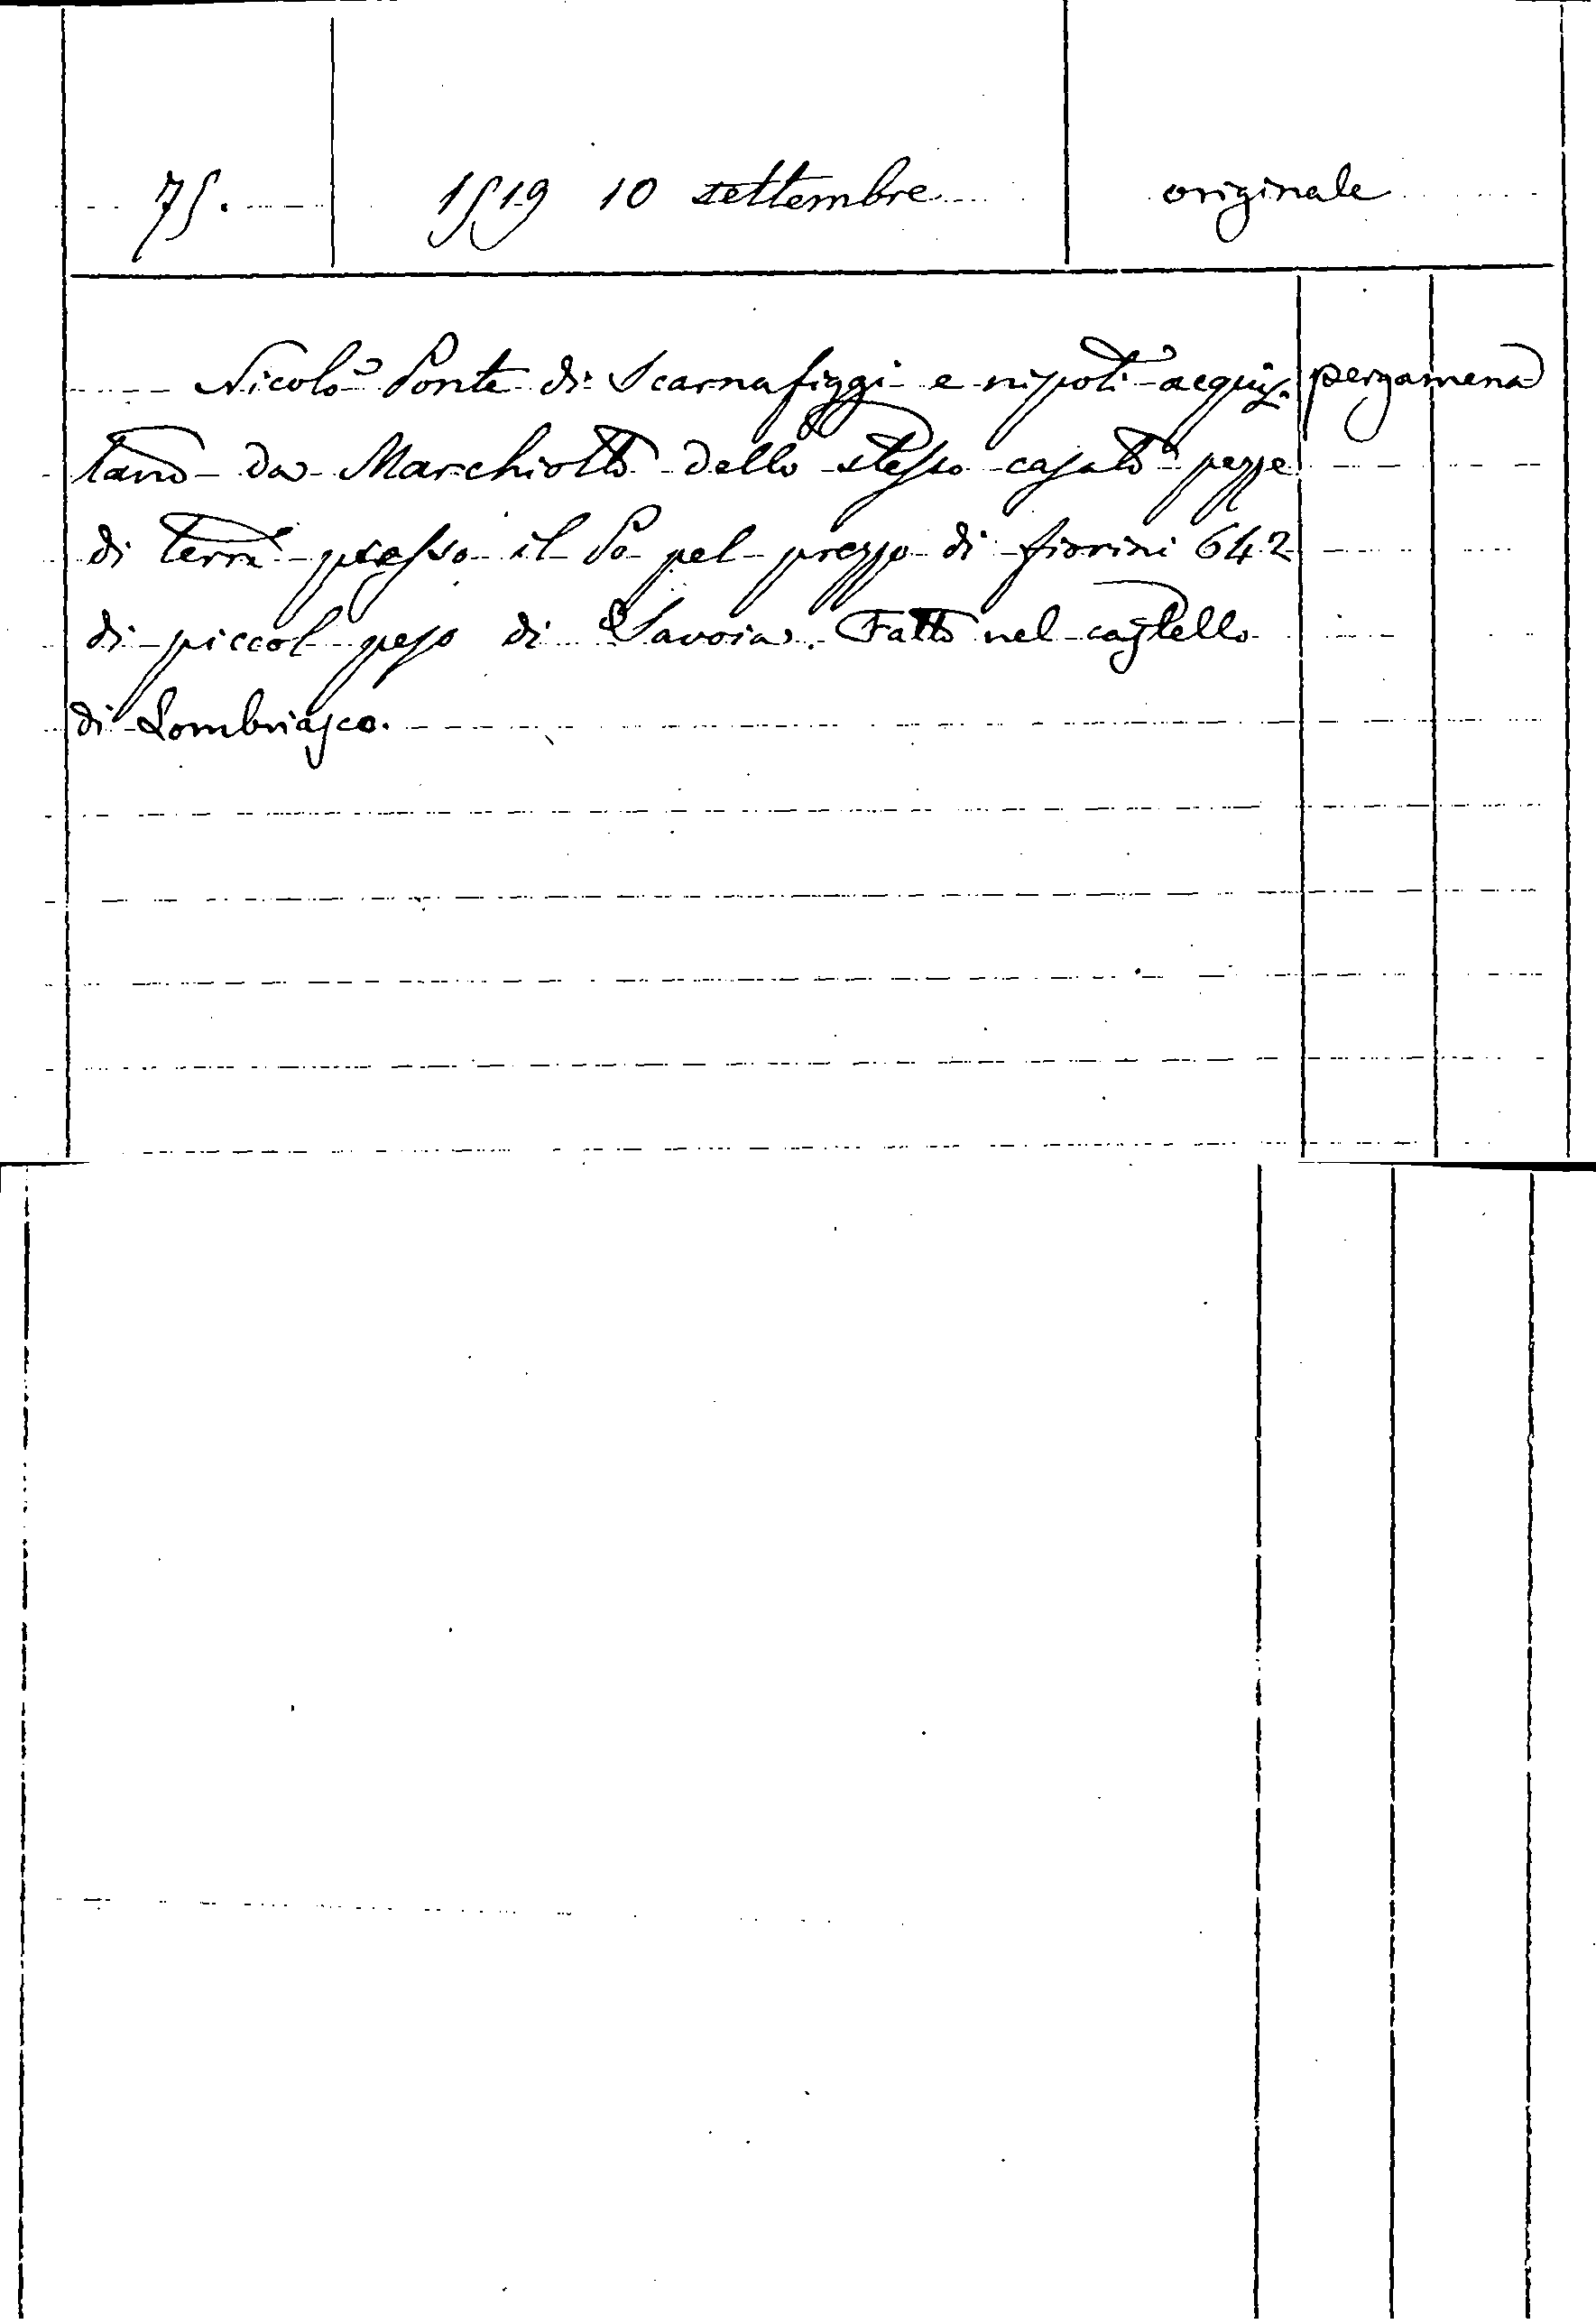 75. 1519 10 settembre originale
Nicolò Ponte di Scarnafiggi e nipoti acquis- pergamena
tano da Marchiotto dello stesso casato pezze
di terra presso il Po pel prezzo di fiorini 642
di piccol peso di Savoia. Fatto nel castello
di Lombriasco.